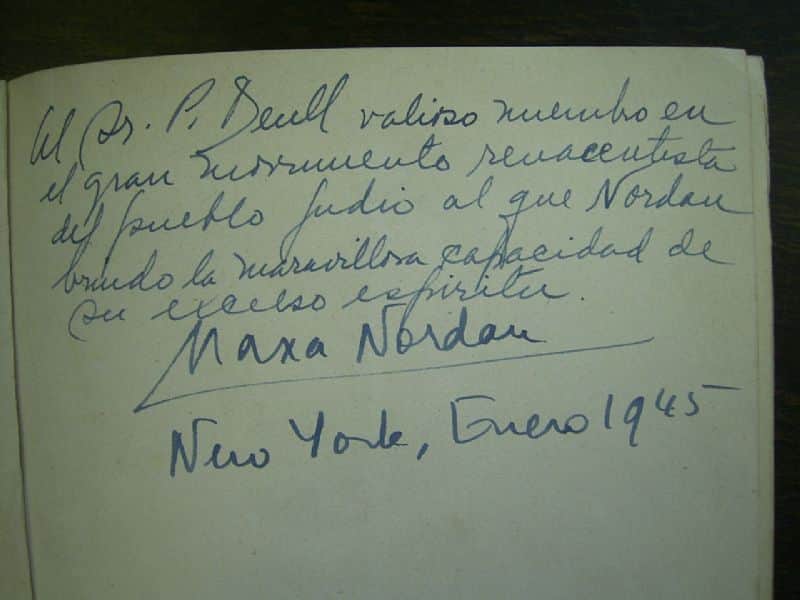 Al Sr. P. Deull valioso miembro en
el gran movimiento renacentista
del pueblo judio al que Nordau
brindo la maravillosa capacidad de
su excelso espiritu.
Maxa Nordau
New York, Enero 1945